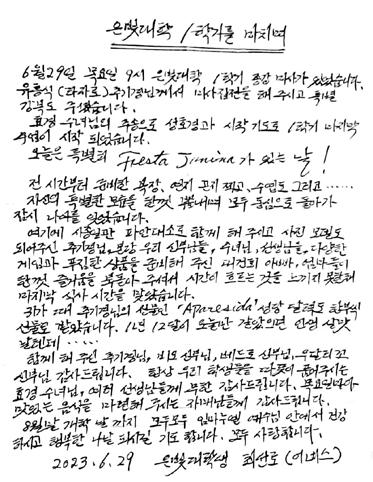 은빛대학 1학기를 마치며
6월 29일 목요일 9시 은빛대학 1학기 종강 미사가 있었습니다.
유흥식(라자로)추기경님께서 미사집전을 해 주시고 특별
강복도 주셨습니다.
효경 수녀님의 주송으로 성호경과 시작 기도로 1학기 마지막
수업이 시작 되었습니다.
오늘은 특별히 Fiesta Junina가 있는 날!
전 시간부터 준비한 복장, 연지 곤지 찍고, 수염도 그리고……
자신의 특별한 모습을 한껏 뽐내며 모두 동심으로 돌아가
잠시 나이를 잊었습니다.
여기에 사흘일판 파란대소로 함께 해 주시고 사진 모델도
되어주신 추기경님, 본당 우리 신부님들, 수녀님, 선생님들, 다양한
게임과 푸짐한 상품을 준비해 주신 대건회 아빠, 엄마들이
한껏 즐거움을 북돋아 주셔서 시간이 흐르는 것을 느끼지 못할때
마지막 식사 시간을 맞았습니다.
귀가 때 추기경님의 선물인 'Aparesida' 성당 달력도 한부씩
선물로 받았습니다. 1년 12달이 오늘만 같았으면 인생 살맛
날텐데……
함께 해 주신 추기경님, 비오 신부님, 베드로 신부님, 우달리꼬
신부님 감사드립니다. 항상 우리 학생들을 따뜻이 품어주시는
효경 수녀님, 여러 선생님들께 무한 감사드립니다. 목요일마다
맛있는 음식을 마련해 주시는 자매님들께 감사드립니다.
8월 개학 날 까지 모두모두 임마누엘 예수님 안에서 건강
하시고 행복한 나날 되시길 기도 합니다. 모두 사랑합니다.
2023. 6. 29 은빛대학생 최산로(아녜스)